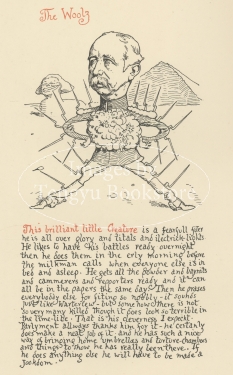 The Woolz
Images by
Tongyu Bookshop
This brilliant little Creature is a fearfull fiter
he is all over glory and titals and ilectrick-lights
He likes to have his battles ready overnight
then he does them in the erly morning before
the milkman calls when everyone else is in
bed and asleep. He gets all the powder and baynits
and cammerers and reporters ready and it can
all be in the papers the same day. Then he pleases
everybody else for fiting so nobbly - it sounds
just like but somehow there is not
so very many killed though it does look so terrible in
the lime-lite. That is his cleverness I expect.
Parlyment allways thanks him for it - he certanly
does make a neat job of it and he has such a nice
way of bringing home umbrellas and torture-chambers
and things to show he has really been there. If
he does anything else he will have to be made a
Jookdom.